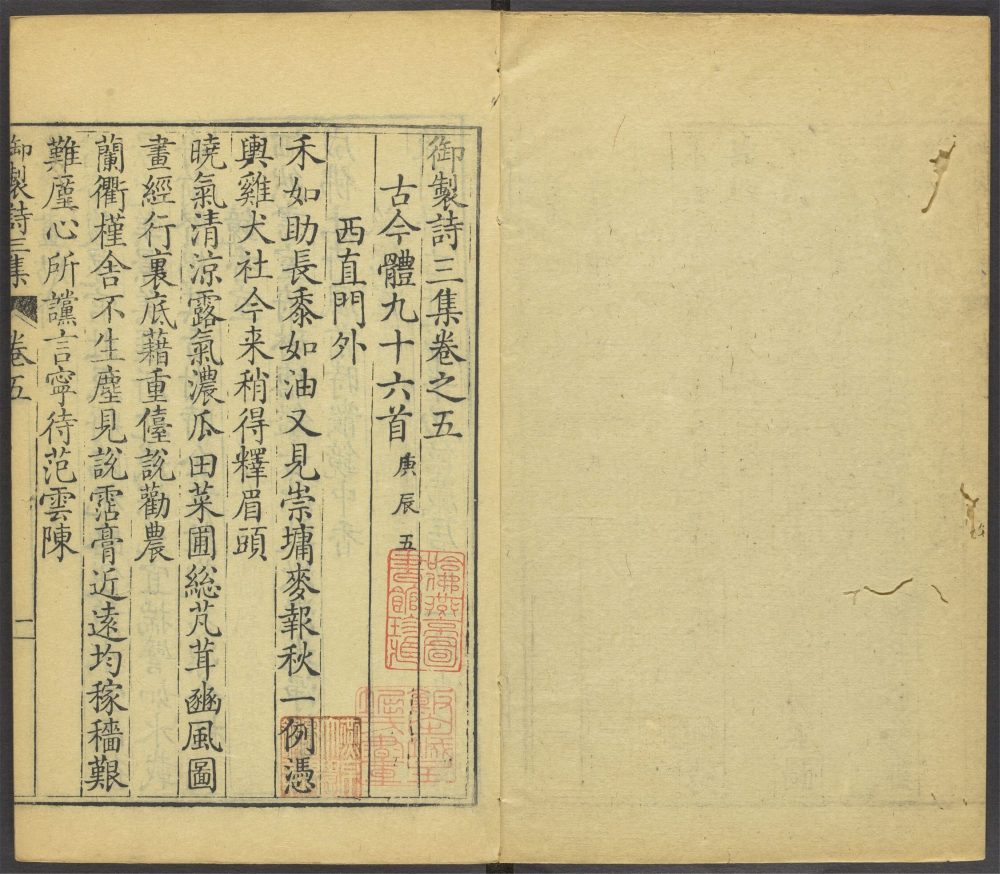 御製詩三集卷之五
古今體九十六首 庚辰五
西直門外
禾如助長黍如油又見崇墉麥報秋一例憑
輿雞犬社今来稍得釋眉頭
曉氣清涼露氣濃瓜田菜圃總芃茸豳風圖
畫經行裏底藉重儓說勸農
蘭衢槿舍不生塵見說霑膏近遠均稼穡艱
難廑心所讜言寧待范雲陳
御製詩三集 卷五 一
哈佛燕京圖書館珍藏